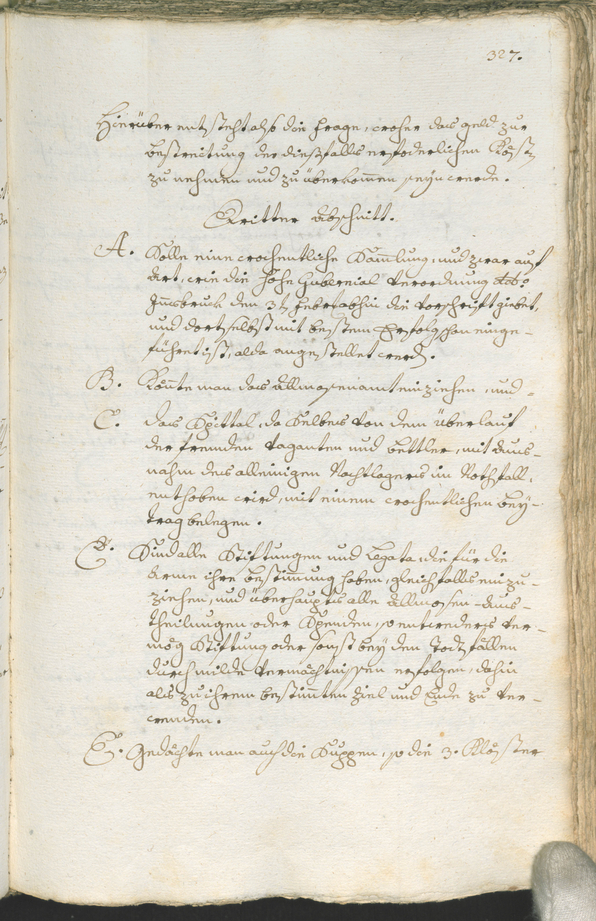 327.
Hierüber entstehet also die Frage, woher das geld zur
bestreitung der dießfalls erforderlichen Kösten
zu nehmen und zu überkommen seyn werde.
Dritter Abschnitt.
A. Solle eine wochentliche Sammlung, und zwar auf
Art, wie die hohe Gubernial Verordnung ddo
Innsbruck den 3t Febr abhin die Vorschrift giebet,
und dortselbst mit bestem Erfolg schon einge-
führet ist, alda angestellet werden.
B. Könte man das Allmosenamt einziehen, und
C. das Spittal, da selbes von dem überlauf
der fremden Vaganten und bettler, mit Aus-
nahm des alleinigen Nachtlagers im Nothfall,
enthoben wird, mit einem wochentlichen bey-
trag belegen.
D. Sind alle Stiftungen und Legata, die für die
Arme ihre bestimung haben, gleichfalls einzu-
ziehen, und überhaupts alle Allmosen-Aus-
theilungen oder Spenden, so entweders ver-
mög Stiftung oder sonst bey den Todtfällen
durch milde Vermächtnissen erfolgen, dahin
als zu ihrem bestimten Ziel und Ende zu ver-
wenden.
E. Gedächte man auf die Suppen, so die 3. Klöster